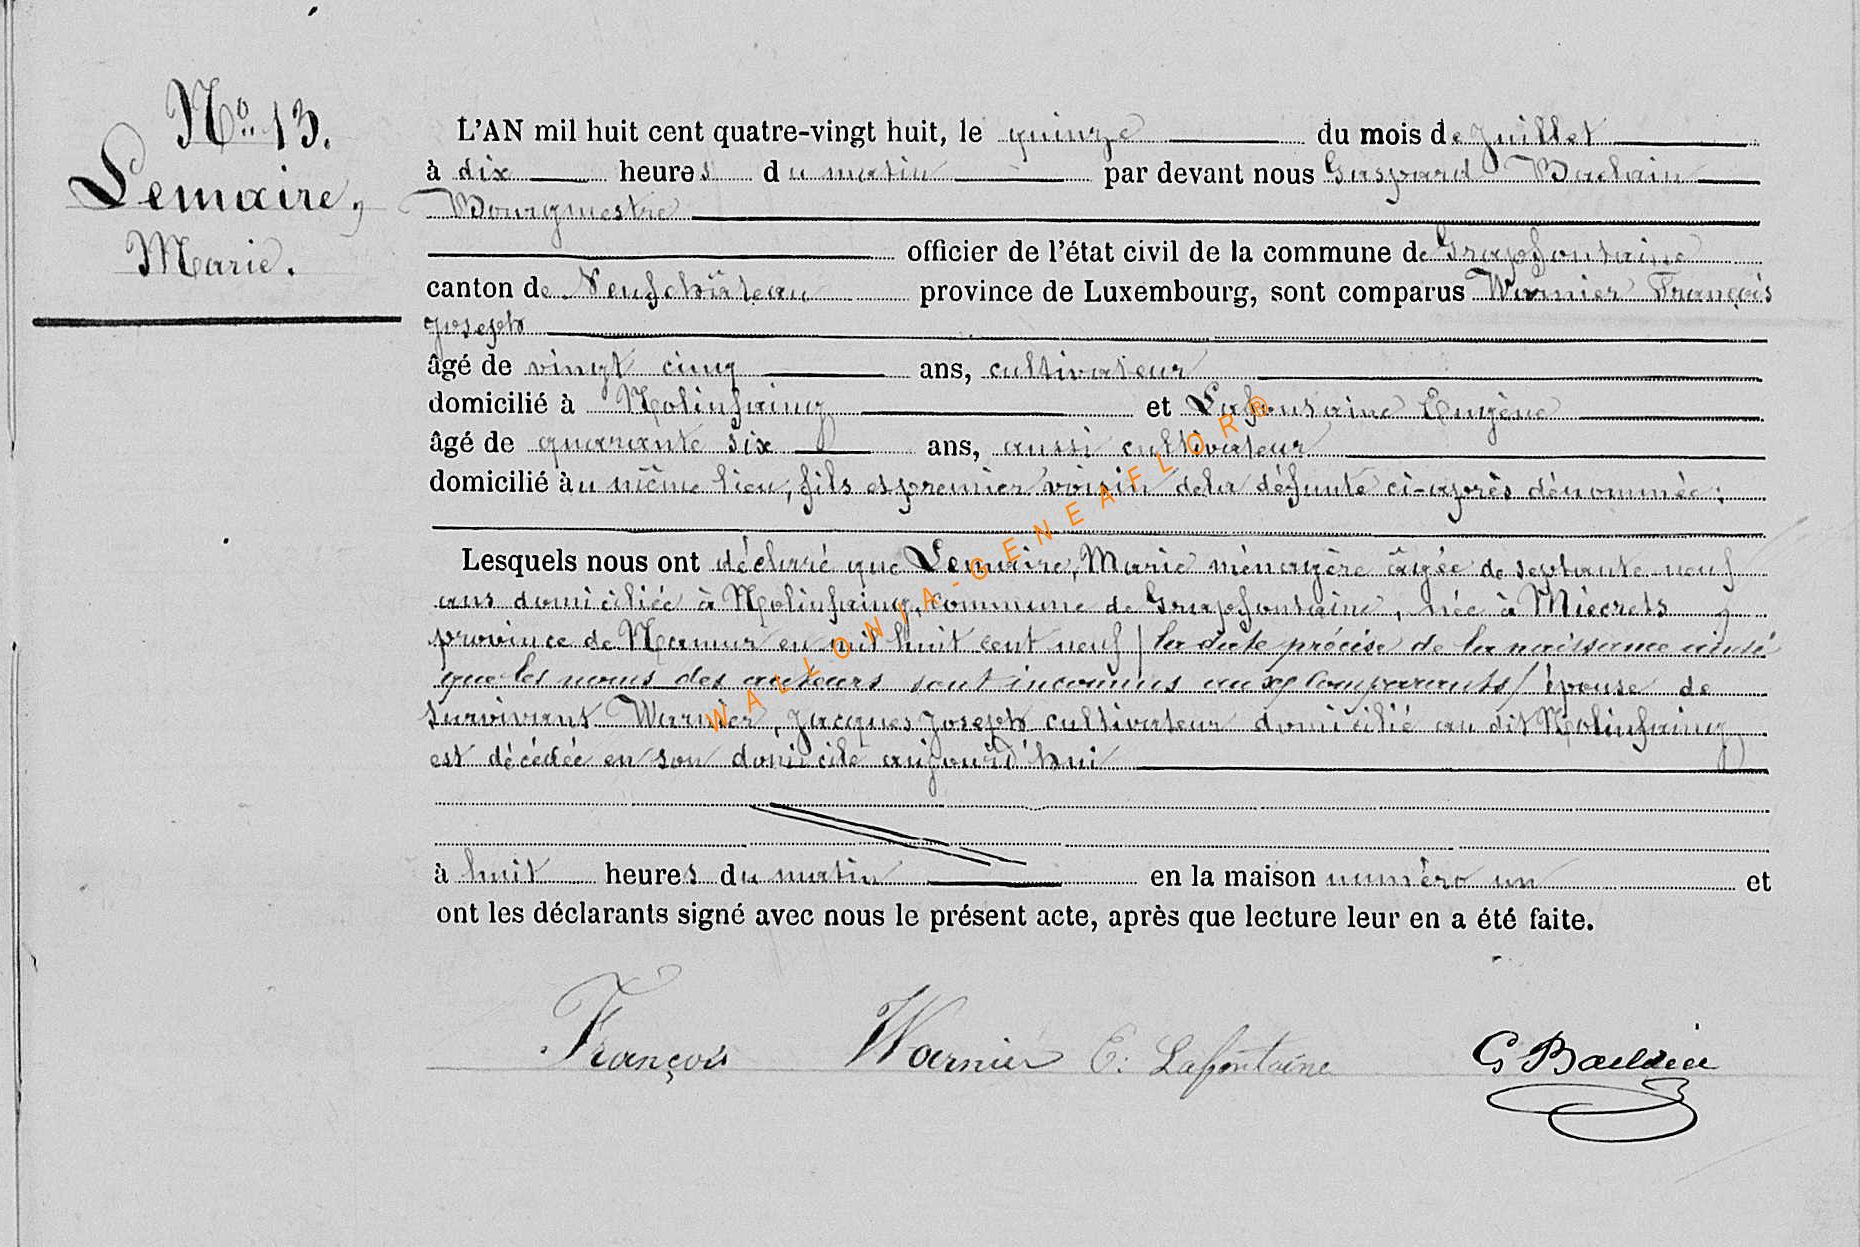 No 13.
Lemaire,
Marie.
L'AN mil huit cent quatre-vingt huit, le quinze du mois de Juillet
à dix heures du matin par devant nous Gaspard
Bourgmestre
officier de l'état civil de la commune de Grapfontaine
canton de Neufchâteau province de Luxembourg, sont comparus Warnier François
Joseph
âgé de vingt cinq ans, cultivateur
domicilié à Molinfaing et Lafontaine Eugène
âgé de quarante six ans, aussi cultivateur
domicilié au même lieu, fils et premier voisin de la défunte ci-après dénommée;
Lesquels nous ont déclaré que Lemaire, Marie ménagère âgée de septante neuf
ans domiciliée à Molinfaing, commune de Grapfontaine, née à Miécrets
province de Namur en mil huit cent neuf / la date précise de la naissance ainsi
que les noms des auteurs sont inconnus aux comparants / épouse de
survivant Warnier, Jacques Joseph cultivateur domicilié au dit Molinfaing
est décédée en son domicile aujourd'hui
à huit heures du matin en la maison numéro un et
ont les déclarants signé avec nous le présent acte, après que lecture leur en a été faite.
François Warnier E. Lafontaine G
WALLONIA-GENEAFLOR®